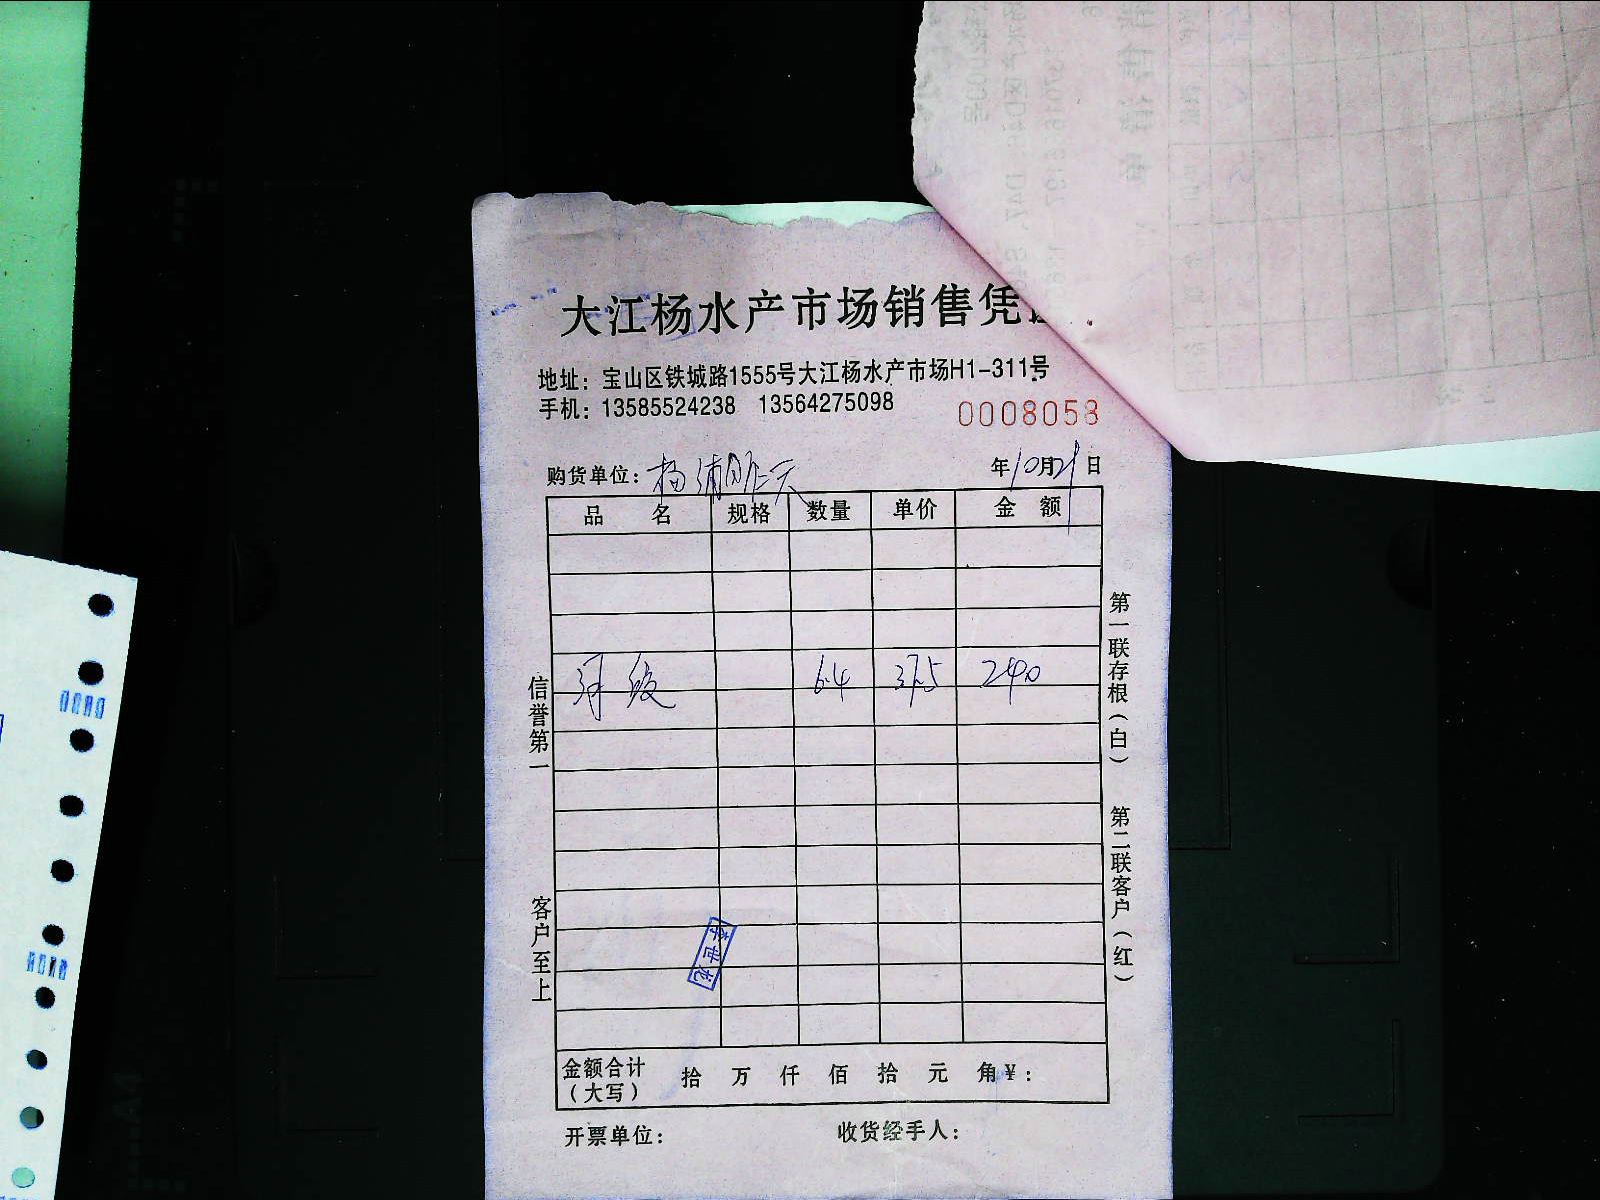 大江杨水产市场销售凭
地址：宝山区铁城路1555号大江杨水产市场H1-311号
手机：13585524238 13564275098
0008058
购货单位：杨浦昨天 年10月21日
品 名 规格 数量 单价 金 额
6.4 37.5 240
信誉第一
客户至上
第一联存根（白）
第二联客户（红）
李世龙
金额合计（大写） 拾 万 仟 佰 拾 元 角 ¥：
开票单位： 收货经手人：